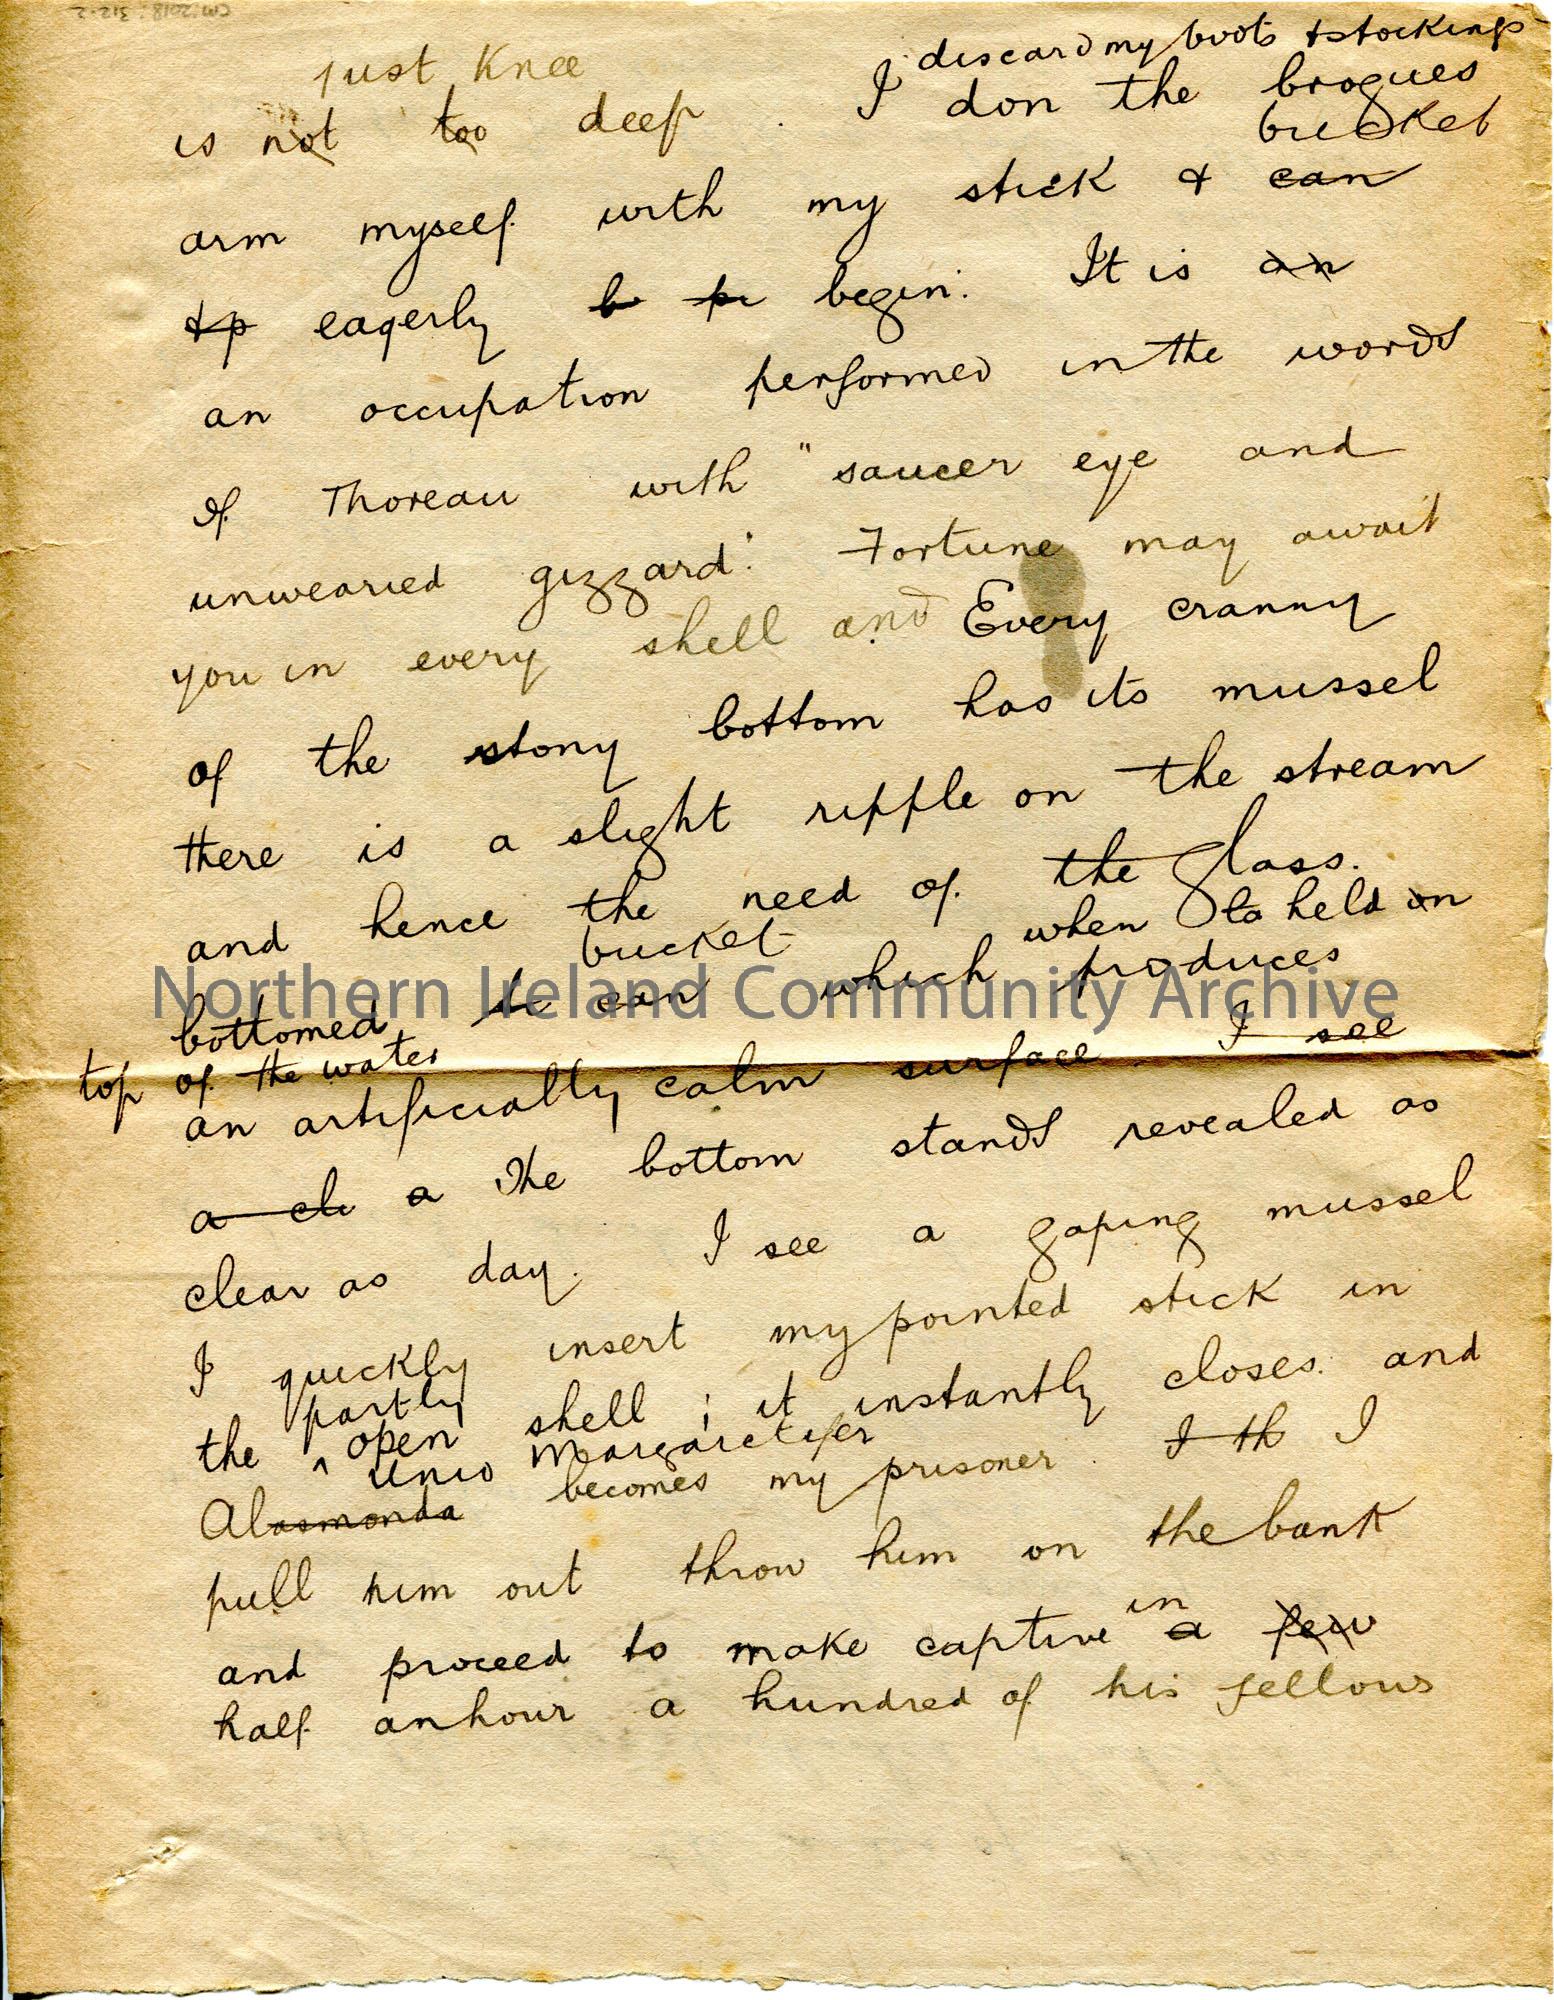 CM:2018:312-2
just Knee
I discard my boots & stockings
is not too deep. I don the brogues
bucket
arm myself with my stick & can
&p eagerly b pr begin. It is an
an occupation performed in the words
of Thoreau with "saucer eye and
unwearied gizzard." Fortune may await
you in every shell and Every cranny
of the stony bottom has its mussel
there is a slight ripple on the stream
and hence the need of the glass.
bucket when to held on
bottomed can which produces
Northern Ireland Community Archive
top of the water
an artificially calm surface. I see
a cl a The bottom stands revealed as
clear as day. I see a gaping mussel
I quickly insert my pointed stick in
partly
the ^ open shell ; it instantly closes. and
Unio Margaretifer
Alasmonda becomes my prisoner. I th I
pull him out throw him on the bank
in
and proceed to make captive a few
half an hour a hundred of his fellows